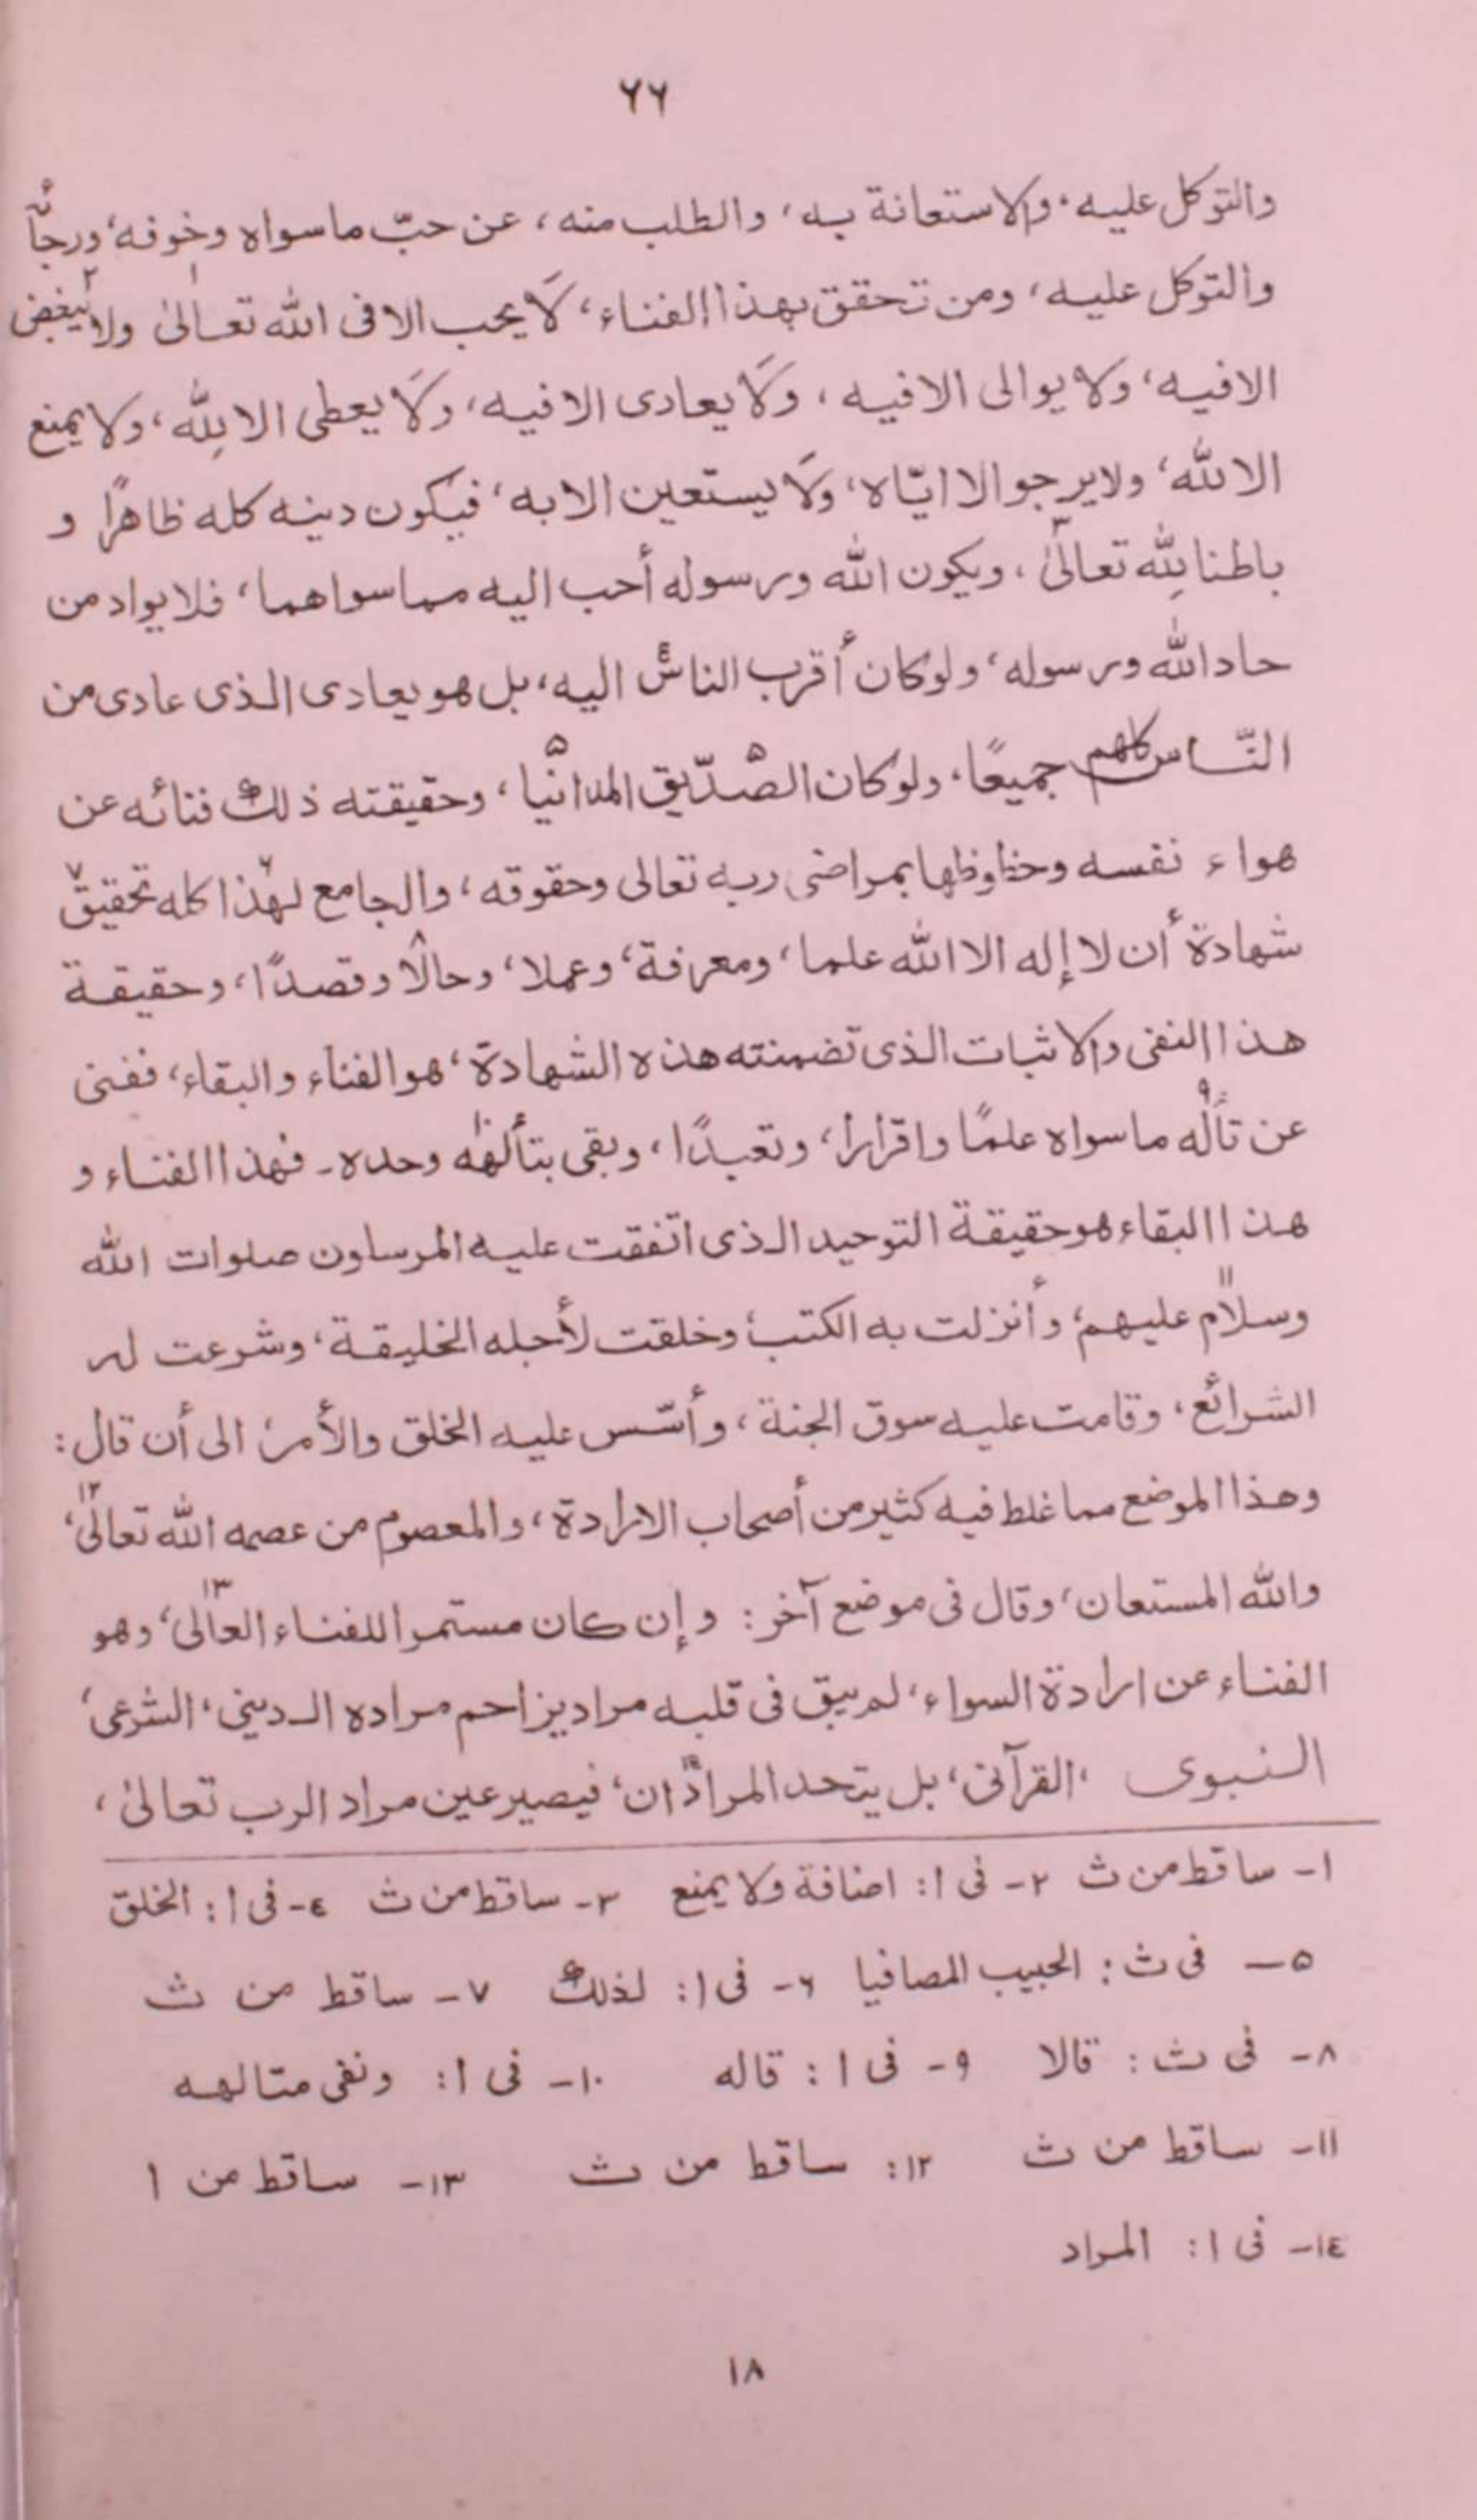 ٦٦
والتوكل عليه، والاستعانة به، والطلب منه، عن حبّ ماسواه وخوفه، ورجاء
والتوكل عليه، ومن تحقق بهذا الفناء، لَا يحب الا فى الله تعالىٰ١ ولا يبغض٢
الا فيه، ولا يوالى الا فيه، ولَا يعادى الا فيه، ولَا يعطى الا لِلّٰه، ولا يمنع
الا للّٰه، ولا يرجو الا ايّاه، ولَا يستعين الا به، فيكون دينه كله ظاهرًا و
باطنا لِلّٰه تعالىٰ٣، ويكون الله ورسوله أحب اليه مما سواهما، فلا يواد من
حاد اللّٰه ورسوله، ولو كان أقرب الناس٤ اليه، بل هو يعادى الذى عادى من
النّاس كلهم جميعًا، ولو كان الصّديق٥ المدانيا٥، وحقيقته ذلك٦ فنائه عن
هواء نفسه وحظوظها بمراضى ربه تعالى وحقوقه، والجامع لهذا٧ كله تحقيق٧
شهادة أن لا إله الا الله علما، ومعرفة، وعملا، وحالا٨ وقصدًا، وحقيقة
هذا النفى والاثبات الذى تضمنته هذه الشهادة، هو الفناء والبقاء، ففنى
عن تأله٩ ماسواه علمًا واقرارا، وتعبدًا، وبقى بتألهه١٠ وحده ـ فهذا الفناء و
هذا البقاء هو حقيقة التوحيد الذى اتفقت عليه المرسلون صلوات الله
وسلام١١ عليهم، وأنزلت به الكتب، وخلقت لأجله الخليقة، وشرعت له
الشرائع، وقامت عليه سوق الجنة، وأسّس عليه الخلق والأمر، الى أن قال:
وهذا الموضع مما غلط فيه كثير من أصحاب الارادة، والمعصوم من عصمه الله تعالىٰ١٢،
والله المستعان، وقال فى موضع آخر: وإن كان مستمرا للفناء العالى١٣، وهو
الفناء عن ارادة السواء، لم يبق فى قلبه مراد يزاحم مراده الدينى، الشرعى،
النبوى، القرآنى، بل يتحد المرادان١٤، فيصير عين مراد الرب تعالىٰ،
١ـ ساقط من ث ٢ـ فى ا: اضافة ولا يمنع ٣ـ ساقط من ث ٤ـ فى ا: الخلق
٥ـ فى ث: الحبيب المصافيا ٦ـ فى ا: لذلك ٧ـ ساقط من ث
٨ـ فى ث: قالا ٩ـ فى ا: قاله ١٠ـ فى ا: ونفى متالهه
١١ـ ساقط من ث ١٢: ساقط من ث ١٣ـ ساقط من ا
١٤ـ فى ا: المراد
١٨